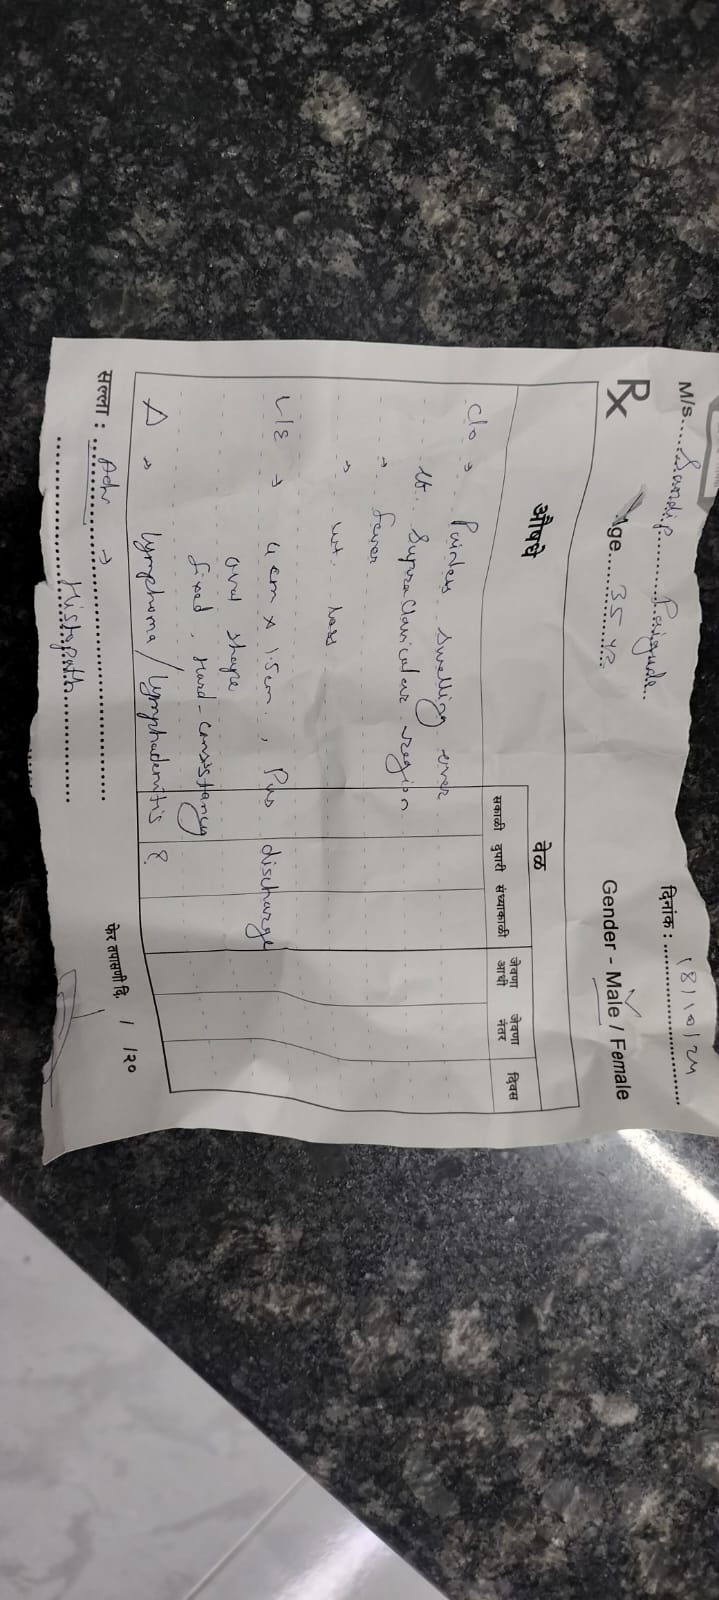 M/s.... Sandip..... Paigude..
दिनांक : ....18/10/24....
Rx
Age......35 yr....
Gender - Male / Female
औषधे
वेळ
सकाळी दुपारी संध्याकाळी जेवणा आधी जेवणा नंतर दिवस
C/o → Painless swelling over
lt. Supraclavicular region
→ fever
→ wt. loss
L/E → 4 cm x 1.5 cm., Pus discharge
oval shape
fixed, Hard-consistancy
Δ → lymphoma / lymphadenitis ?
सल्ला : ..Adv →
Histopath
फेर तपासणी दि. / /२०